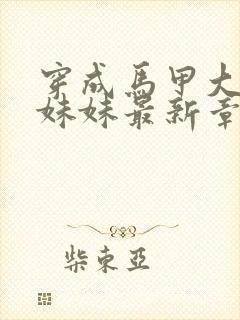 穿成馬甲大
妹妹最新章
柴東亞